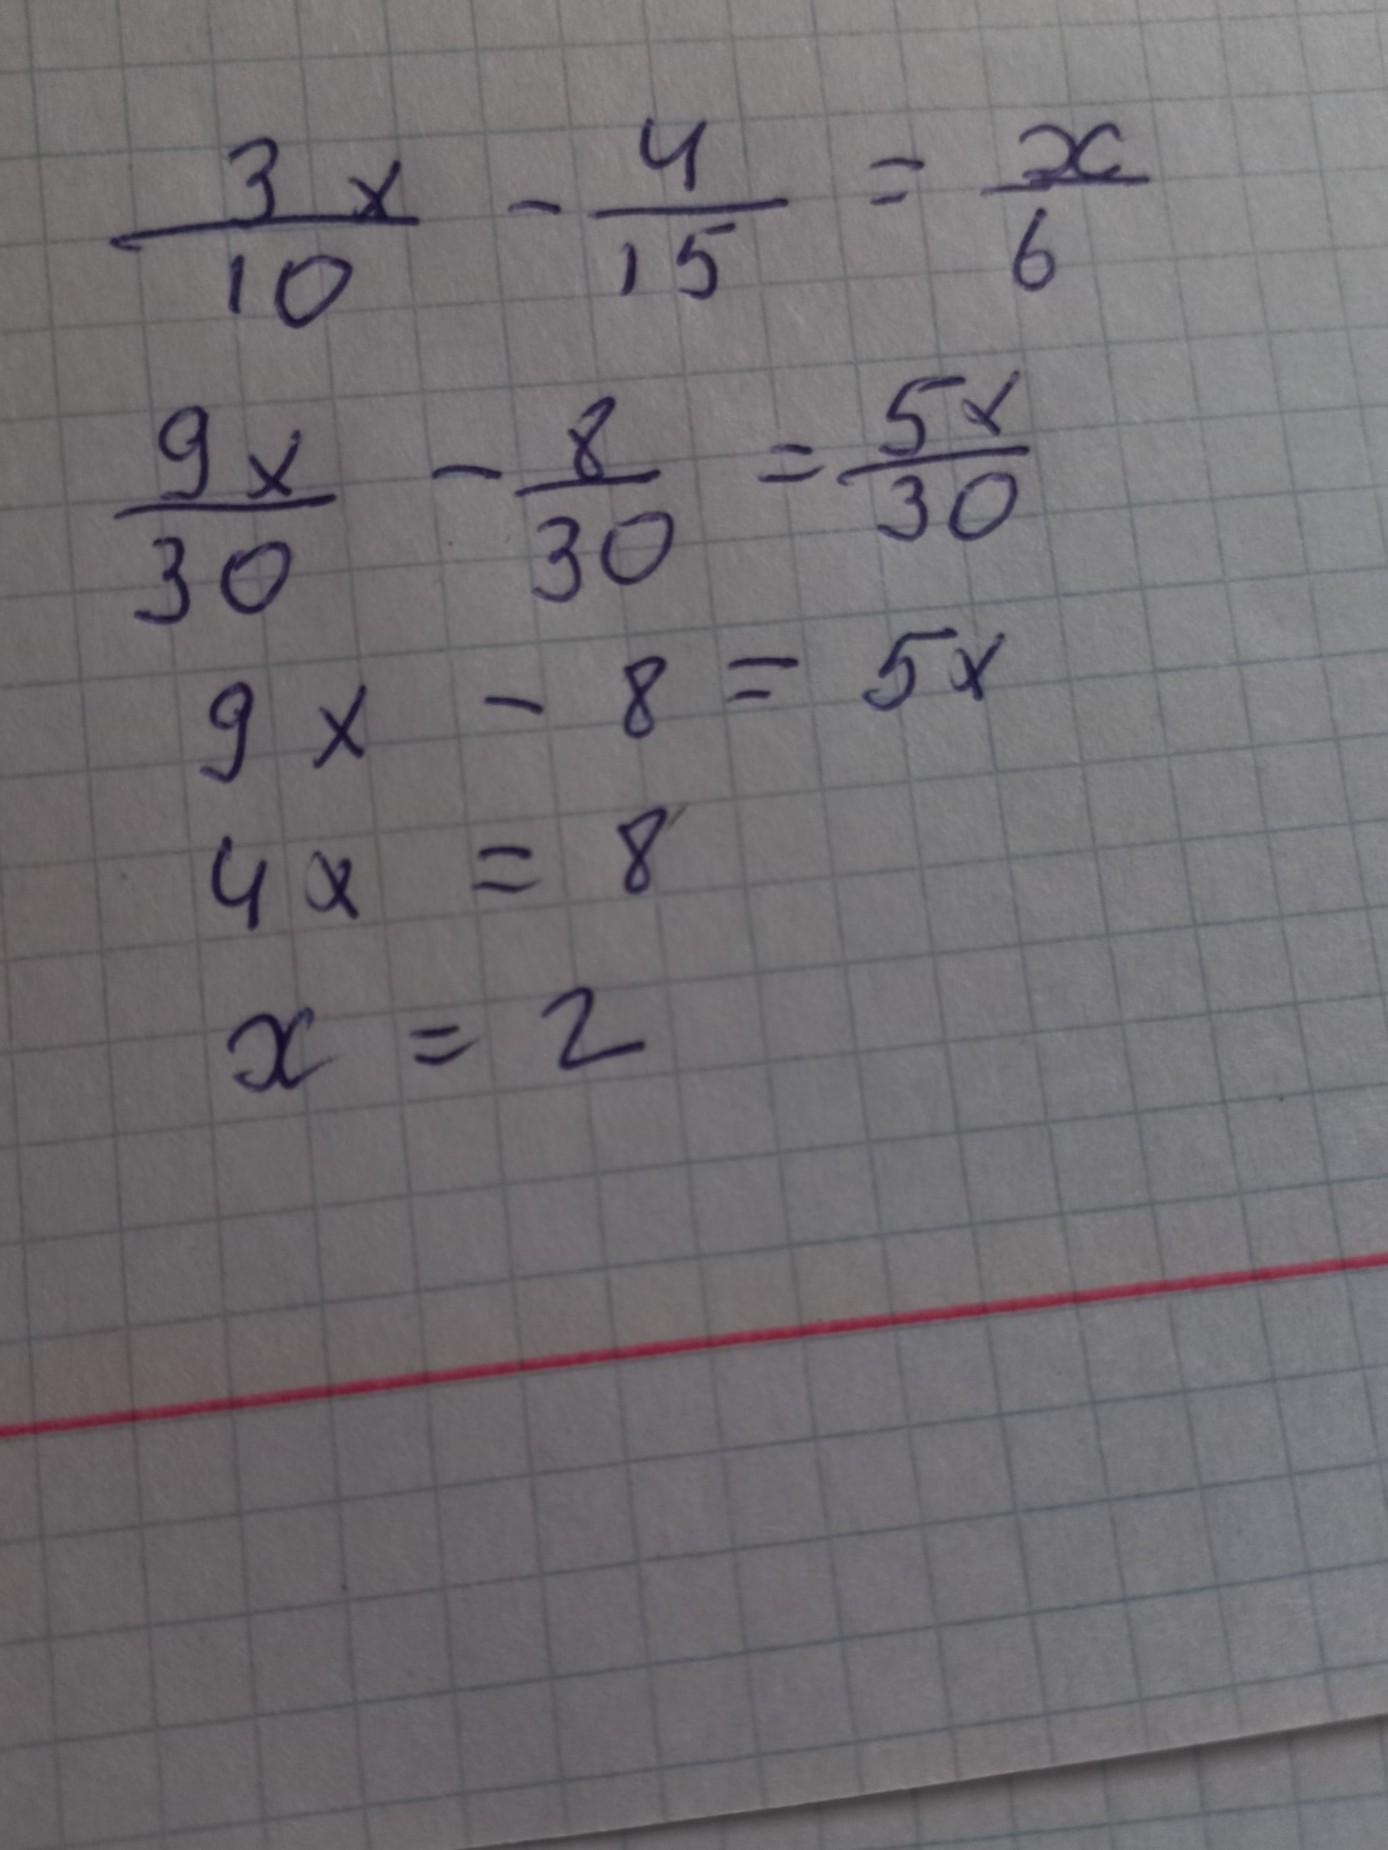 3x/10 - 4/15 = x/6
9x/30 - 8/30 = 5x/30
9x - 8 = 5x
4x = 8
x = 2